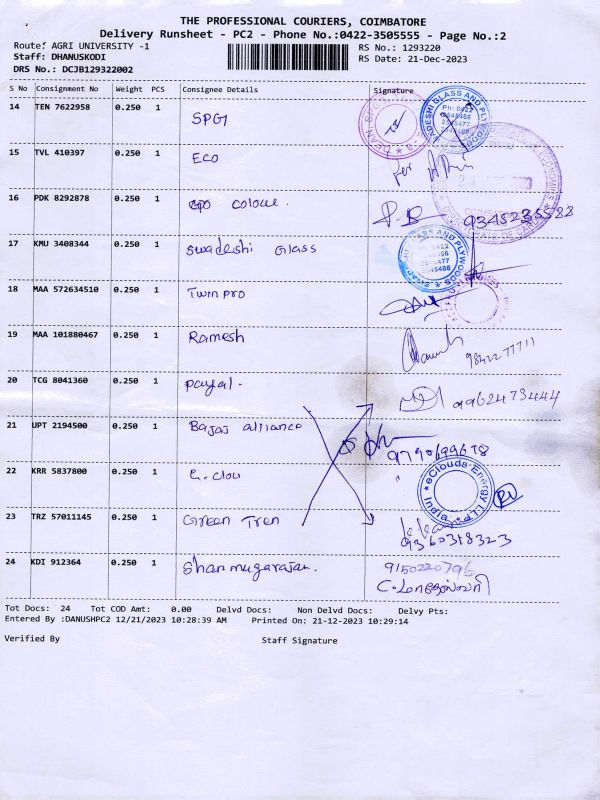 THE PROFESSIONAL COURIERS, COIMBATORE
Delivery Runsheet - PC2 - Phone No.:0422-3505555 - Page No.:2
Route: AGRI UNIVERSITY -1
RS No.: 1293220
Staff: DHANUSKODI
RS Date: 21-Dec-2023
DRS No.: DCJB129322002
S No Consignment No Weight PCS Consignee Details Signature
14 TEN 7622958 0.250 1 SPG
15 TVL 410397 0.250 1 ECO
16 PDK 8292878 0.250 1 colour. 9345235588
17 KMU 3408344 0.250 1 Swadeshi Glass
18 MAA 572634510 0.250 1 Twin pro
19 MAA 101880467 0.250 1 Ramesh 9842277711
20 TCG 8041360 0.250 1 payal. 9962473444
21 UPT 2194500 0.250 1 Bajaj alliance 9790699678
22 KRR 5837800 0.250 1 E. clou
eClouds Energy LLP
India
23 TRZ 57011145 0.250 1 Green Tren 9360318323
24 KDI 912364 0.250 1 Shanmugarajan. 9150220796
Tot Docs: 24 Tot COD Amt: 0.00 Delvd Docs: Non Delvd Docs: Delvy Pts:
Entered By :DANUSHPC2 12/21/2023 10:28:39 AM Printed On: 21-12-2023 10:29:14
Verified By Staff Signature